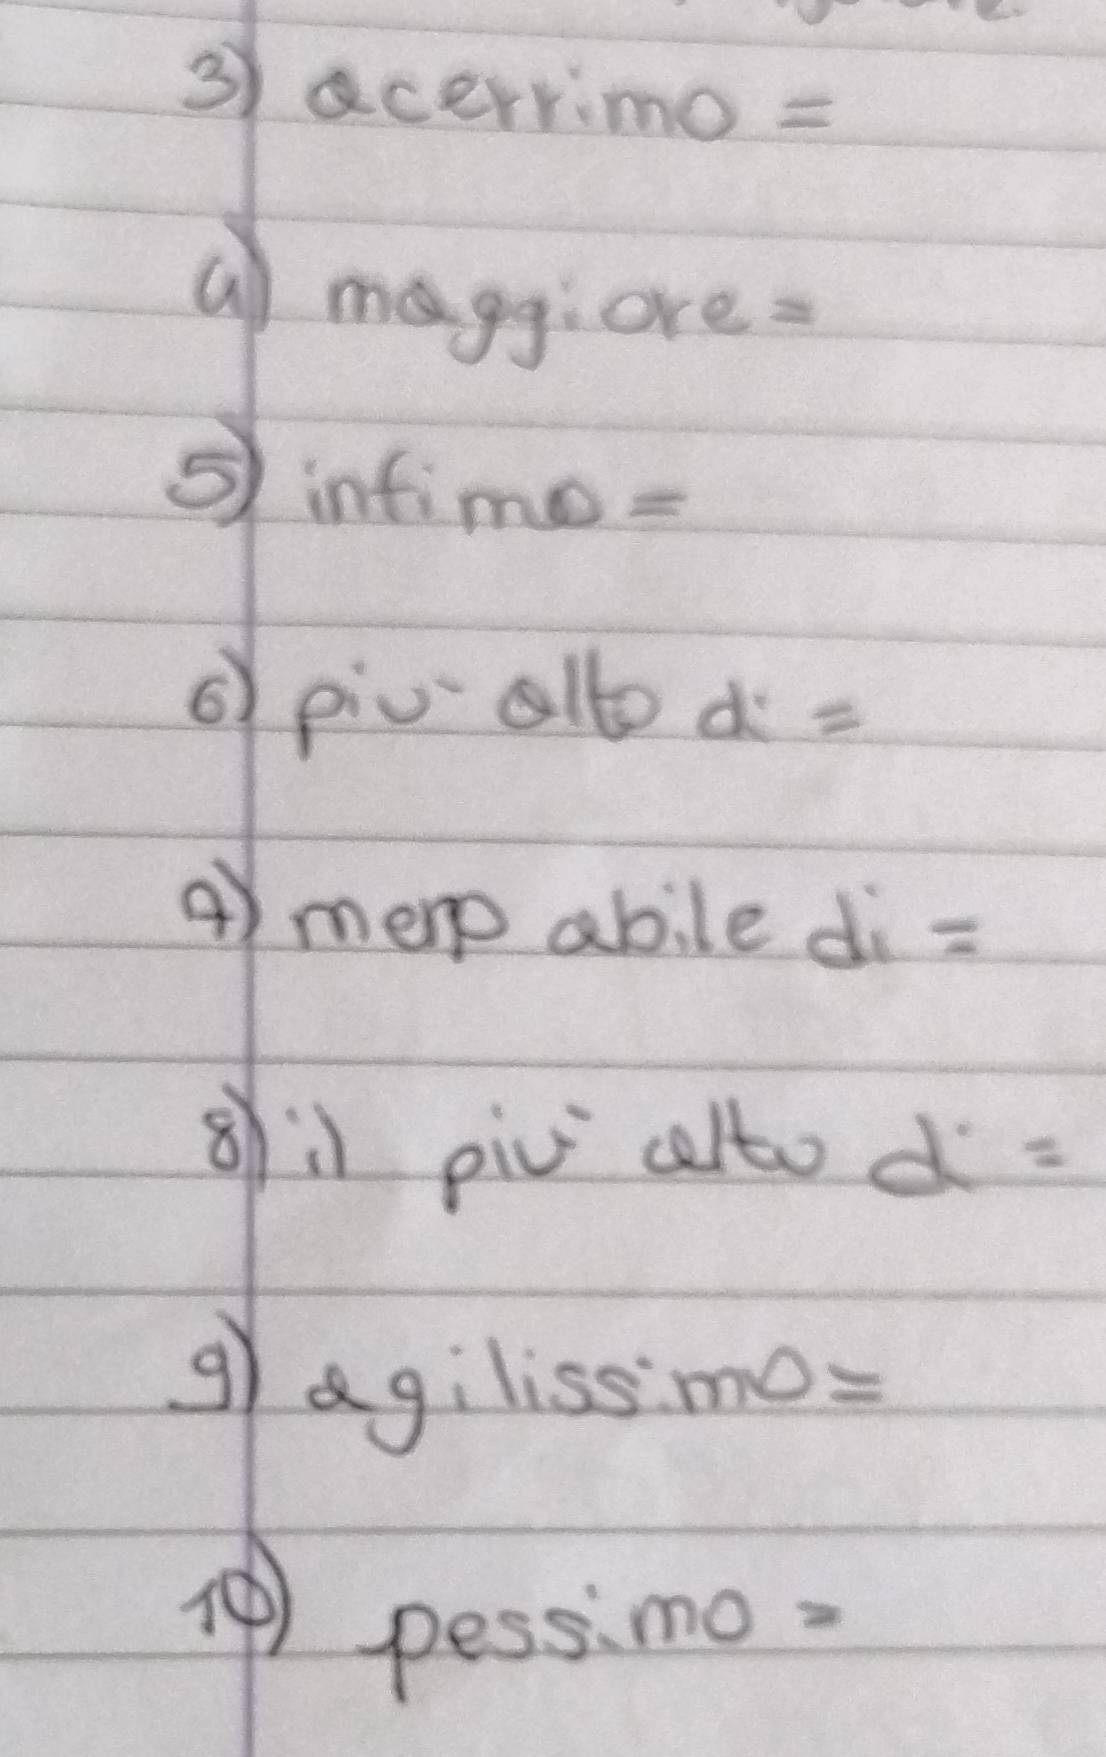 3) acerrimo =
4) maggiore =
5) infimo =
6) più alto di =
7) meno abile di =
8) il più alto di =
9) agilissimo =
10) pessimo =